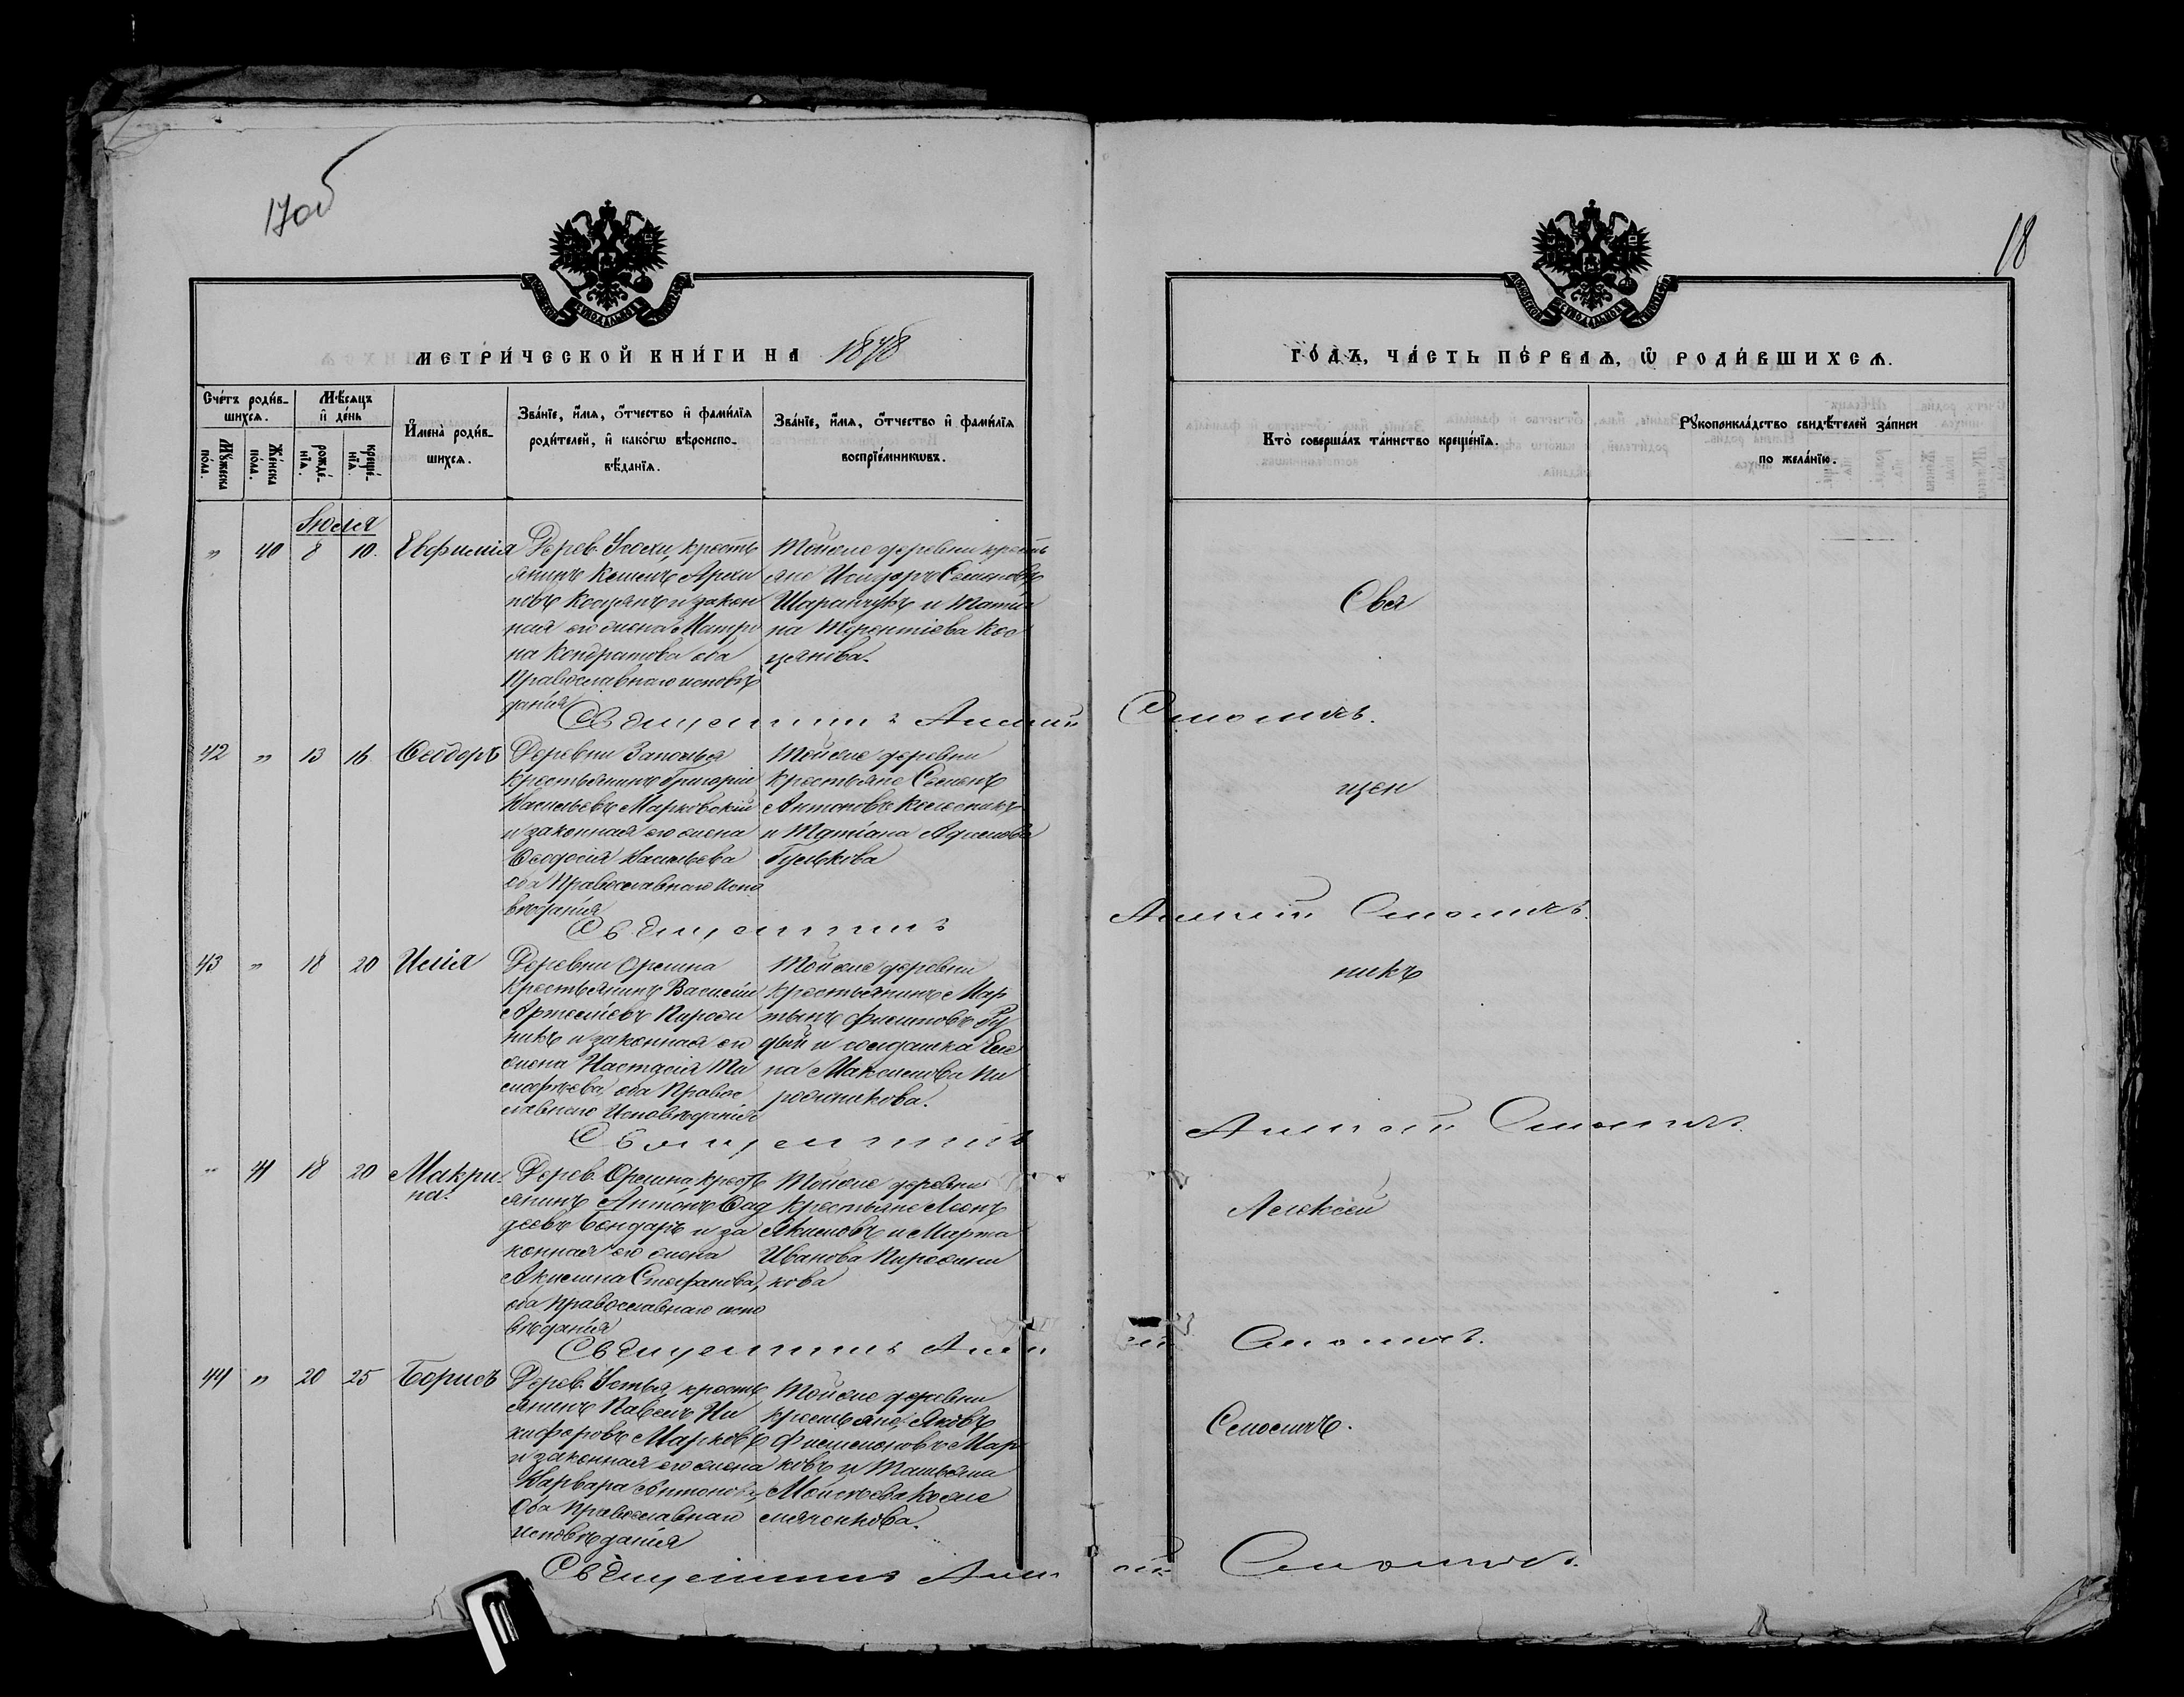 17об
18
МЕТРИ́ЧЕСКОЙ КНИ́ГИ НА 1878
ГО́ДЪ, ЧА́СТЬ ПЕ́РВАѦ, Ѽ РОДИ́ВШИХСѦ.
Сче́тъ роди́в-
шихсѧ.
Мꙋ́жеска по́ла.
Же́нска по́ла.
Мѣ́сѧцъ и де́нь
рожде́-нїѧ.
креще́-нїѧ.
И҆мена̀ роди́в-
шихсѧ.
Зва́нїе, и҆́мѧ, ѻ҆́тчество и҆ фами́лїѧ
роди́телей, и҆ како́гѡ вѣроиспо-
вѣ́данїѧ.
Зва́нїе, и҆́мѧ, ѻ҆́тчество и҆ фами́лїѧ
воспрїе́мникѡвъ.
Кто̀ соверша́лъ та́инство креще́нїѧ.
Рꙋкоприкла́дство свидѣ́телей за́писи
по жела́нїю.
Іюля
" 40 8 10. Евфимія
Дерев. кресть
янинъ Архи
повъ и закон
ная его жена Матро
на Кондратова оба
Православнаго исповѣ
данія
Тойже деревни кресть
яне Исидоръ Семеновъ
и Татія
на Терентіева Кос
цянова.
Свя
Священникъ Алексій Смоличъ.
42 " 13 16 Ѳеодоръ
Деревни Заполья
крестьянинъ Григорій
Васильевъ Марковскій
и законная его жена
Ѳеодосія Васильева
оба Православнаго Испо
вѣданія
Тойже деревни
крестьяне Семенъ
Антоновъ Колесникъ
и Татіана
Гулькова
щен
Священникъ Алексій Смоличъ.
43 " 18 20 Илія
Деревни Орешна
крестьянинъ Василій
Артеміевъ Пирож
никъ и законная его
жена Настасія Ти
мофѣева, оба Правос
лавнаго Исповѣданія
Тойже деревни
крестьянинъ Мар
тынъ Филиповъ Ру
дый и солдатка Еле
на Максимова Пи
рожникова.
никъ
Священникъ Алексій Смоличъ.
" 41 18 20 Макри-
на.
Дерев. Орешна кресть
янинъ Антонъ Ѳад
деевъ Бондарь и за
конная его жена
Акилина Стефанова,
оба православнаго испо
вѣданія
Тойже деревни
крестьяне Леонъ
Якимовъ и Марта
Иванова Пирожни
кова
Алексѣй
Священникъ Алексій Смоличъ.
44 " 20 25 Борисъ
Дерев. Устья, кресть
янинъ Павелъ Ни
кифоровъ Марковъ
и законная его жена
Варвара Антонова,
Оба Православнаго
исповѣданія
Тойже деревни
крестьяне, Яковъ
Филимоновъ Мар
ковъ и Татьяна
Моисѣева
Смоличъ.
Священникъ Алексій Смоличъ.